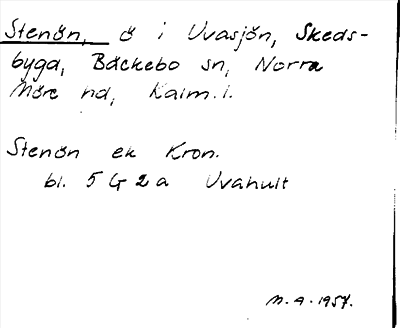 Stenön, ö i Uvasjön, Skeds-
byga, Bäckebo sn, Norra
Möre hd, Kalm. l.
Stenön ek Kron.
bl. 5 G 2 a Uvahult
M. A. 1957.